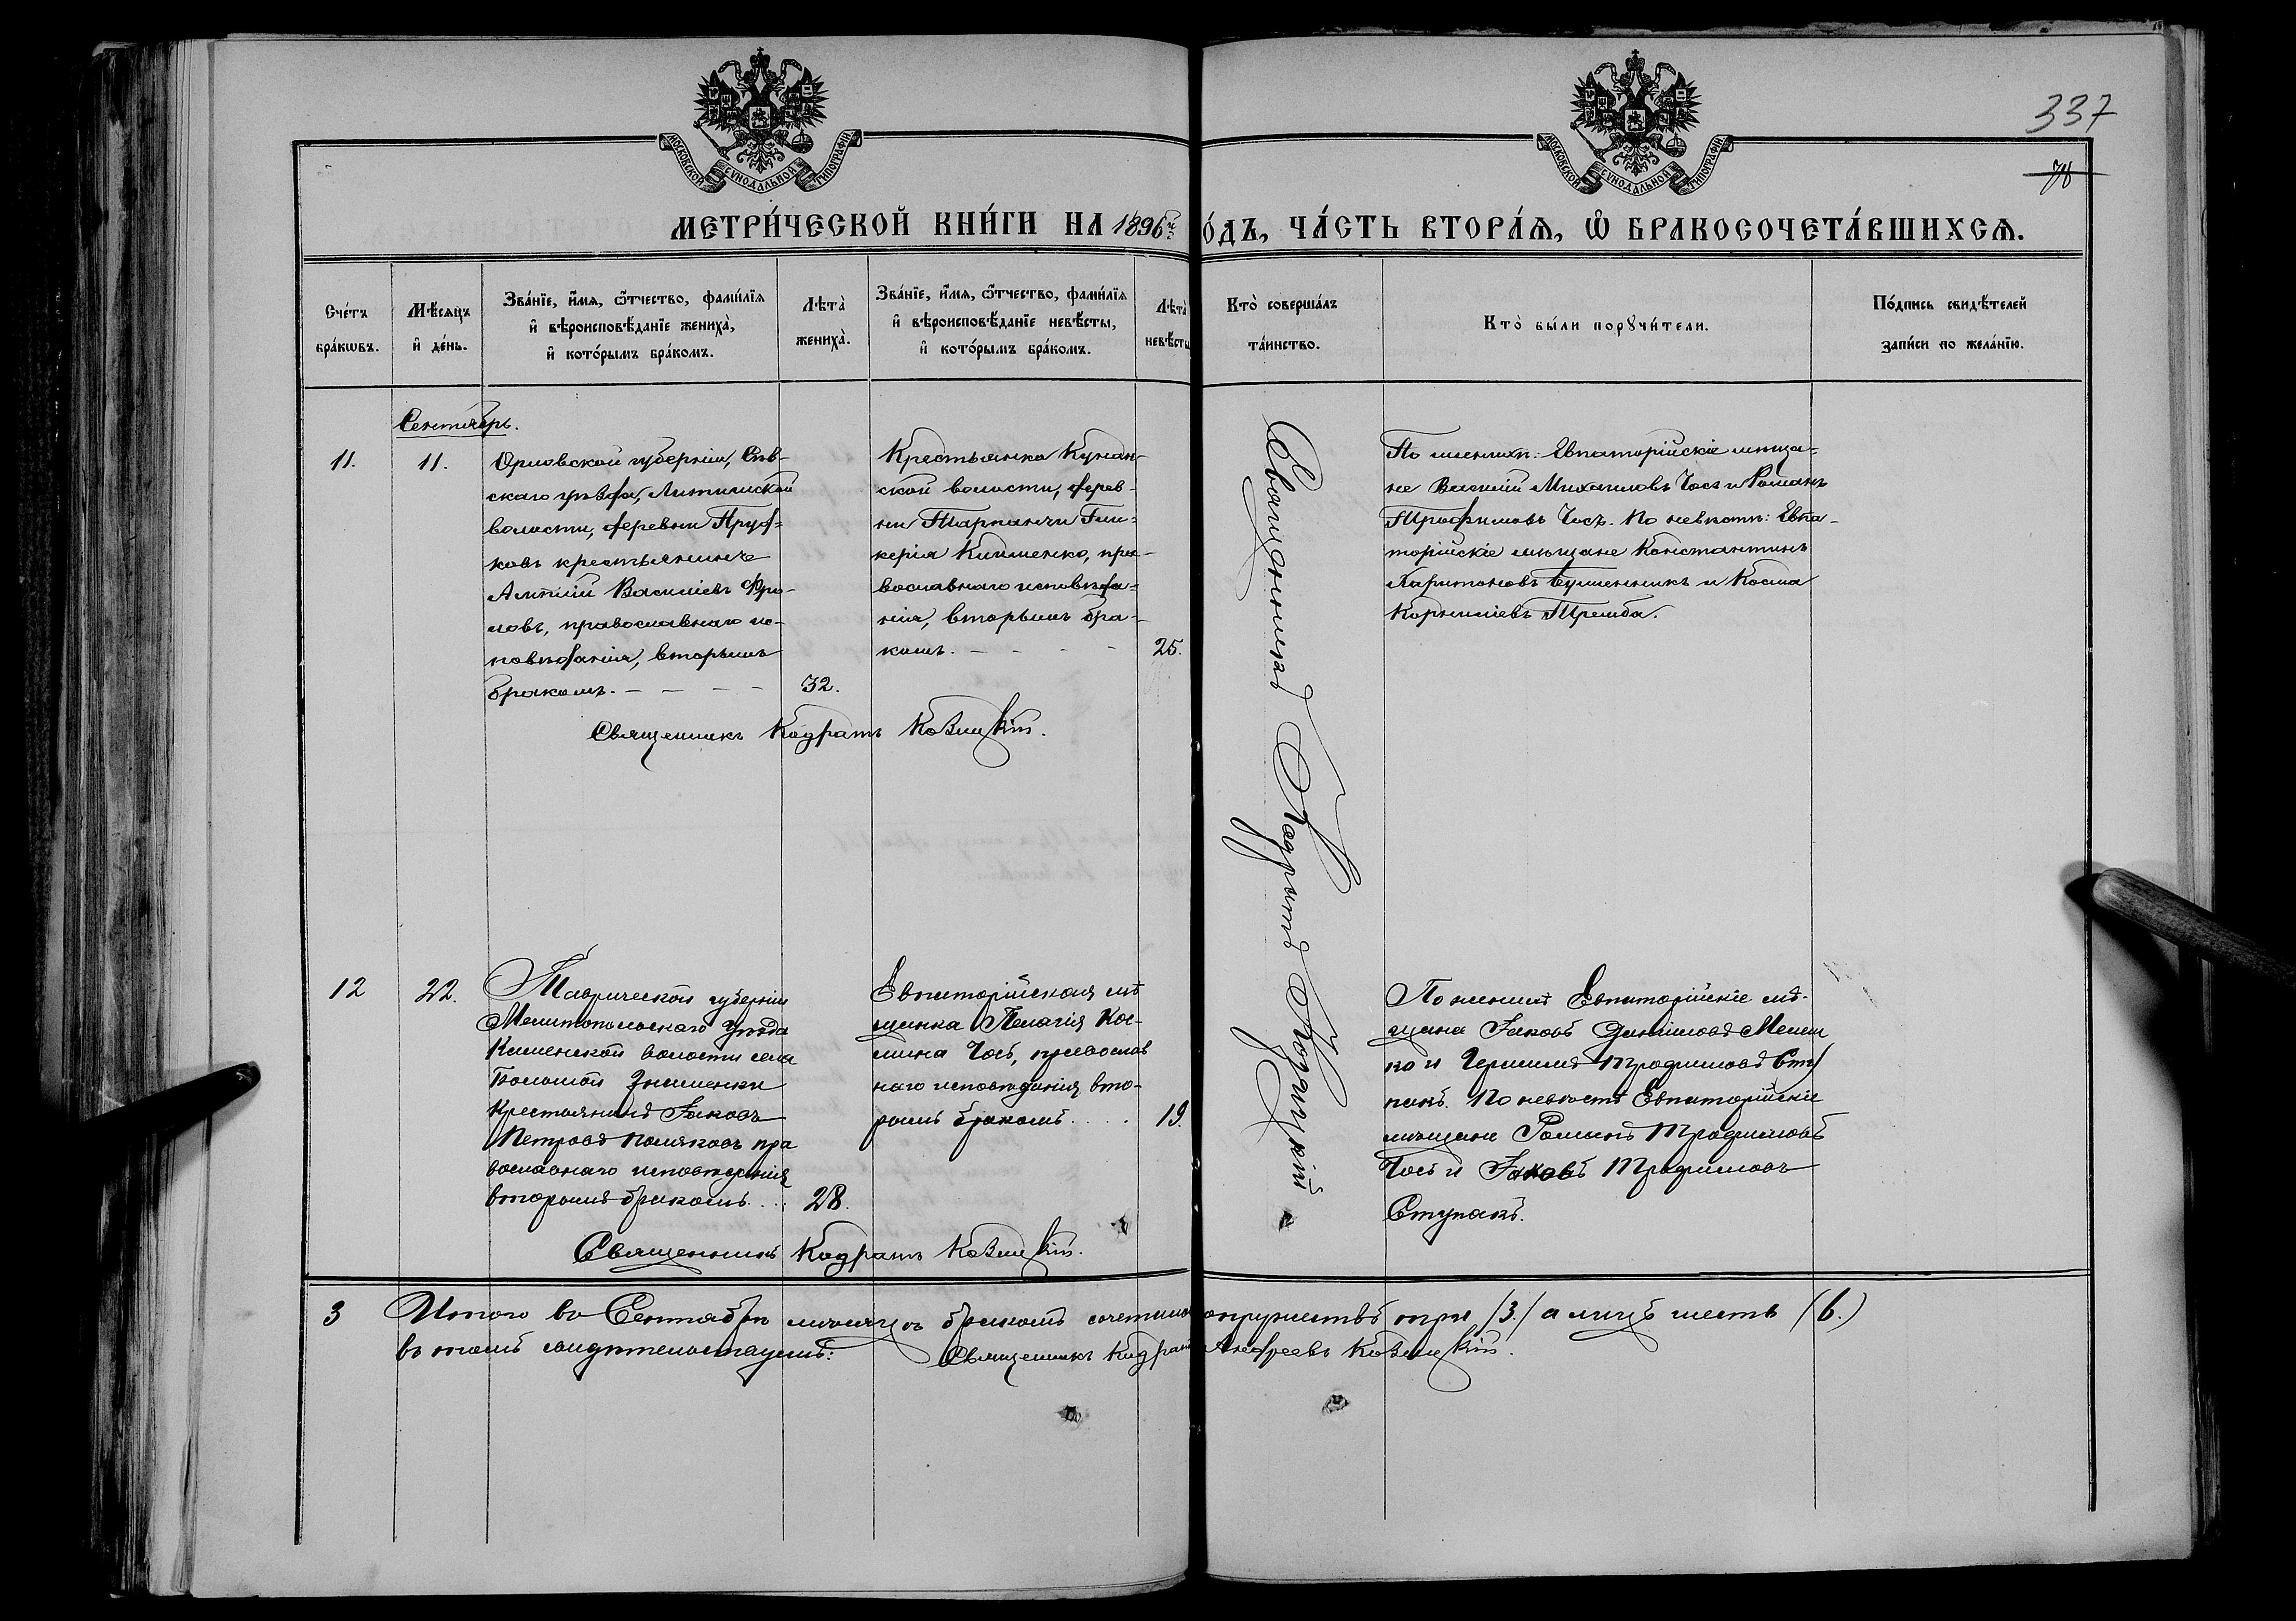 337
78
МОСКОВСКОЙ СѴНОДАЛЬНОЙ ТИПОГРАФІИ
МОСКОВСКОЙ СѴНОДАЛЬНОЙ ТИПОГРАФІИ
МЕТРИ́ЧЕСКОЙ КНИ́ГИ НА 1896й О́ДЪ, ЧА́СТЬ ВТОРА́Ѧ, Ѽ БРАКОСОЧЕТА́ВШИХСѦ.
Сче́тъ бра́кѡвъ.
Мѣ́сѧцъ и҆ де́нь.
Зва́нїе, и҆́мѧ, ѻ҆́тчество, фами́лїѧ
и҆ вѣроисповѣ́данїе жениха̀,
и҆ кото́рымъ бра́комъ.
Лѣта̀ жениха̀.
Зва́нїе, и҆́мѧ, ѻ҆́тчество, фами́лїѧ
и҆ вѣроисповѣ́данїе невѣ́сты,
и҆ кото́рымъ бра́комъ.
Лѣта̀ невѣ́сты
Кто̀ соверша́лъ та́инство.
Кто̀ бы́ли порꙋчи́тели.
По́дпись свидѣ́телей
запи́си по жела́нїю.
Сентябрь.
11.
11.
Орловской губерніи, Сѣв-
скаго уѣзда, Литижской
волости, деревни Пруд-
ковъ крестьянинъ
Алипій Василіевъ Фро-
ловъ, православнаго ис-
повѣданія, вторымъ
бракомъ. - - - -
32.
Крестьянка Кунан-
ской волости, дерев-
ни Тарпанчи Гли-
керія Клименко, пра-
вославнаго исповѣда-
нія, вторымъ бра-
комъ. - - - -
25.
Священникъ Кодратъ Козицкій
По женихѣ: Евпаторійскіе мѣща-
не Василій Михаиловъ Чосъ и Романъ
Трофимовъ Чосъ. По невѣстѣ: Евпа-
торійскіе мѣщане Константинъ
Харитоновъ и Косма
Корниліевъ Тремба.
Священникъ Кодратъ Козицкій.
12
22.
Таврической губерніи
Мелитопольскаго Уѣзда
Каменской волости села
Большой Знаменки
Крестьянинъ Іаковъ
Петровъ Поляковъ пра
вославнаго исповѣданія
вторымъ бракомъ. . .
28.
Евпаторійская мѣ
щанка Пелагія Кос-
мина Чосъ, православ
наго исповѣданія, вто-
рымъ бракомъ. . . .
19.
По женихѣ Евпаторійскіе мѣ-
щане Іаковъ Даніиловъ
ко и Трофимовъ Сту
пакъ. По невѣстѣ Евпаторійскіе
мѣщане Романъ Трофимовъ
Чосъ и Іаковъ Трофимовъ
Ступакъ.
Священникъ Кодратъ Козицкій.
3 Итого въ Сентябрѣ мѣсяцѣ бракомъ супружествъ три /3./ а лицъ шесть (6.)
въ томъ свидѣтельствуемъ:
Священникъ Кодратъ Андреевъ Козицкій.